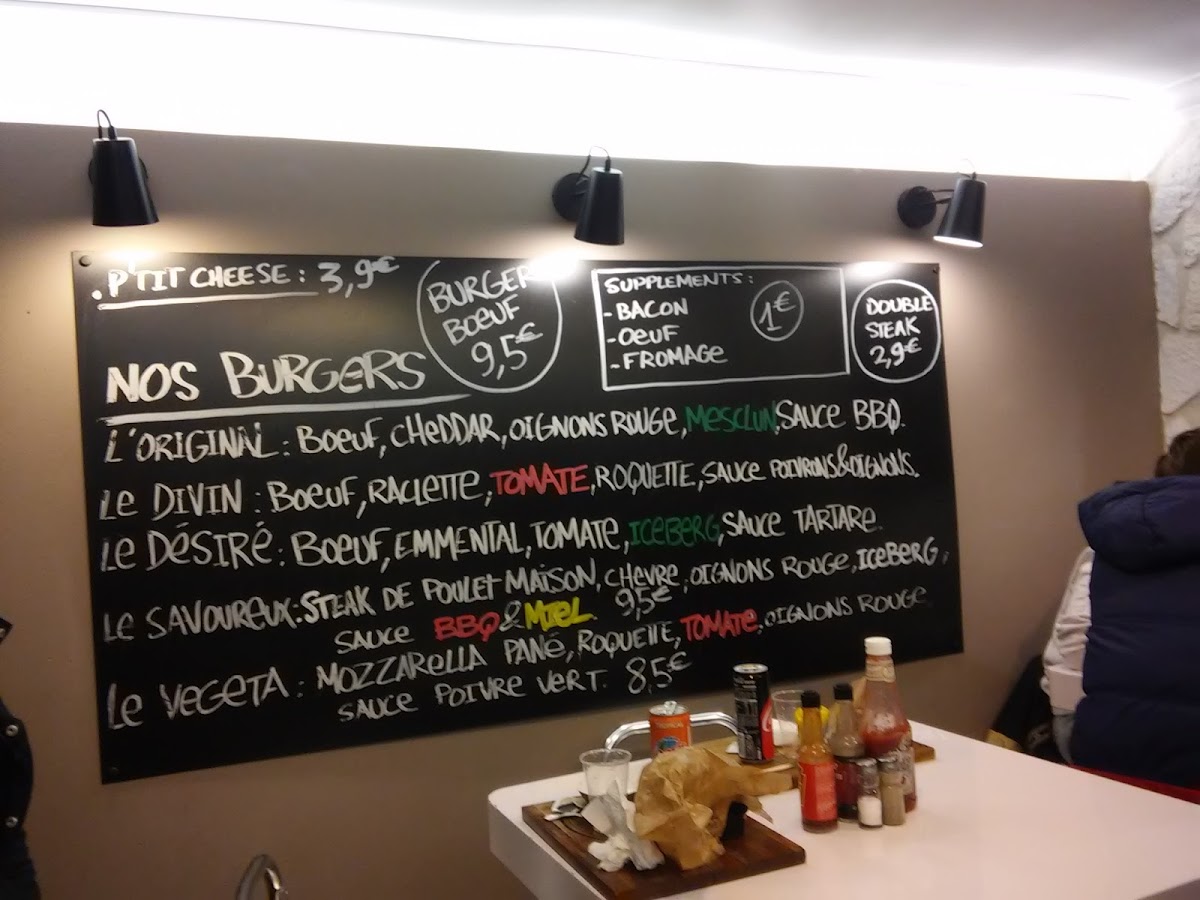 P'TIT CHEESE : 3,9€
BURGER
BOEUF
9,5€
SUPPLEMENTS :
- BACON
- OEUF
- FROMAGE
1€
DOUBLE
STEAK
2,9€
NOS BURGERS
L'ORIGINAL : BOEUF, CHEDDAR, OIGNONS ROUGE, MESCLUN, SAUCE BBQ.
LE DIVIN : BOEUF, RACLETTE, TOMATE, ROQUETTE, SAUCE POIVRONS & OIGNONS.
LE DÉSIRÉ : BOEUF, EMMENTAL, TOMATE, ICEBERG, SAUCE TARTARE.
LE SAVOUREUX : STEAK DE POULET MAISON, CHEVRE, OIGNONS ROUGE, ICEBERG,
SAUCE BBQ & MIEL. 9,5€
LE VEGETA : MOZZARELLA PANÉ, ROQUETTE, TOMATE, OIGNONS ROUGE
SAUCE POIVRE VERT. 8,5€